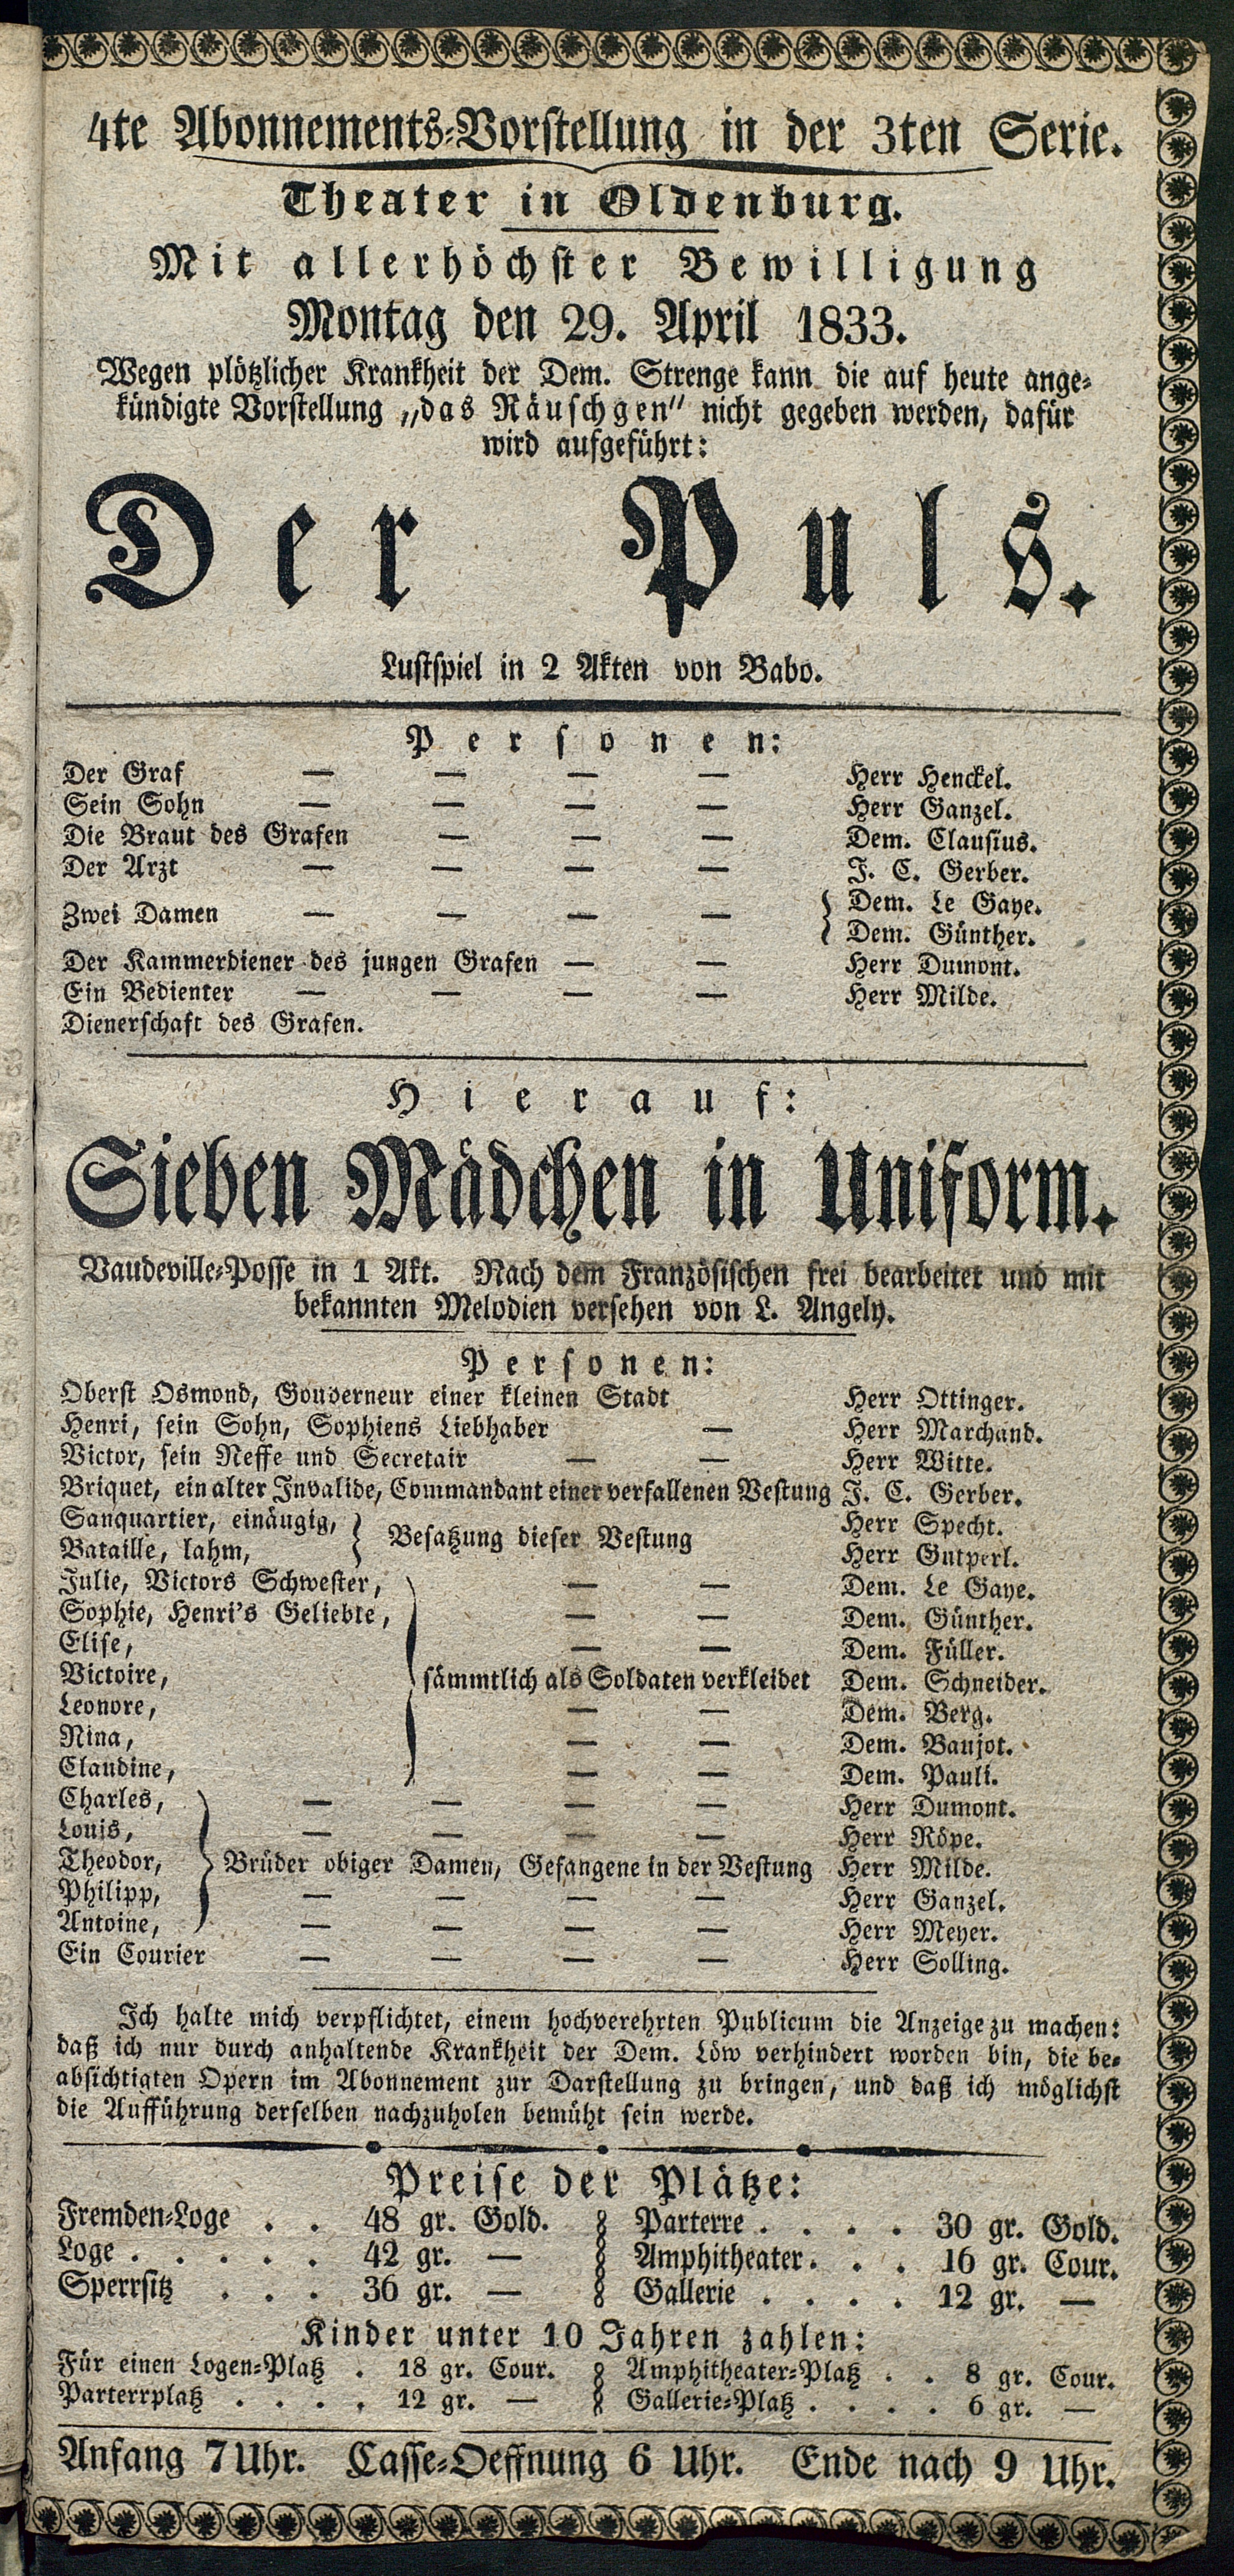 4te Abonnements-Vorstellung in der 3ten Serie.
Theater in Oldenburg.
Mit allerhöchster Bewilligung
Montag den 29. April 1833.
Wegen plötzlicher Krankheit der Dem. Strenge kann die auf heute ange-
kündigte Vorstellung „das Räuschgen" nicht gegeben werden, dafür
wird aufgeführt:
Der Puls.
Lustspiel in 2 Akten von Babo.
Personen:
Der Graf — — — — Herr Henckel.
Sein Sohn — — — — Herr Ganzel.
Die Braut des Grafen — — — Dem. Clausius.
Der Arzt — — — — J. C. Gerber.
Zwei Damen — — — — { Dem. Le Gaye.
Dem. Günther.
Der Kammerdiener des jungen Grafen — — Herr Dumont.
Ein Bedienter — — — — Herr Milde.
Dienerschaft des Grafen.
Hierauf:
Sieben Mädchen in Uniform.
Vaudeville-Posse in 1 Akt. Nach dem Französischen frei bearbeitet und mit
bekannten Melodien versehen von L. Angely.
Personen:
Oberst Osmond, Gouverneur einer kleinen Stadt Herr Ottinger.
Henri, sein Sohn, Sophiens Liebhaber — Herr Marchand.
Victor, sein Neffe und Secretair — — Herr Witte.
Briquet, ein alter Invalide, Commandant einer verfallenen Vestung J. C. Gerber.
Sanquartier, einäugig, } Besatzung dieser Vestung Herr Specht.
Bataille, lahm, Herr Gutperl.
Julie, Victors Schwester, — — Dem. Le Gaye.
Sophie, Henri's Geliebte, — — Dem. Günther.
Elise, — — Dem. Füller.
Victoire, } sämmtlich als Soldaten verkleidet Dem. Schneider.
Leonore, — — Dem. Berg.
Nina, — — Dem. Baujot.
Claudine, — — Dem. Pauli.
Charles, — — — — Herr Dumont.
Louis, — — — — Herr Röpe.
Theodor, } Brüder obiger Damen, Gefangene in der Vestung Herr Milde.
Philipp, — — — — Herr Ganzel.
Antoine, — — — — Herr Meyer.
Ein Courier — — — — Herr Solling.
Ich halte mich verpflichtet, einem hochverehrten Publicum die Anzeige zu machen:
daß ich nur durch anhaltende Krankheit der Dem. Löw verhindert worden bin, die be-
absichtigten Opern im Abonnement zur Darstellung zu bringen, und daß ich möglichst
die Aufführung derselben nachzuholen bemüht sein werde.
Preise der Plätze:
Fremden-Loge . . 48 gr. Gold. Parterre . . . . 30 gr. Gold.
Loge . . . . . 42 gr. — Amphitheater . . . 16 gr. Cour.
Sperrsitz . . . 36 gr. — Gallerie . . . . 12 gr. —
Kinder unter 10 Jahren zahlen:
Für einen Logen-Platz . 18 gr. Cour. Amphitheater-Platz . . 8 gr. Cour.
Parterrplatz . . . . 12 gr. — Gallerie-Platz . . . . 6 gr. —
Anfang 7 Uhr. Casse-Oeffnung 6 Uhr. Ende nach 9 Uhr.